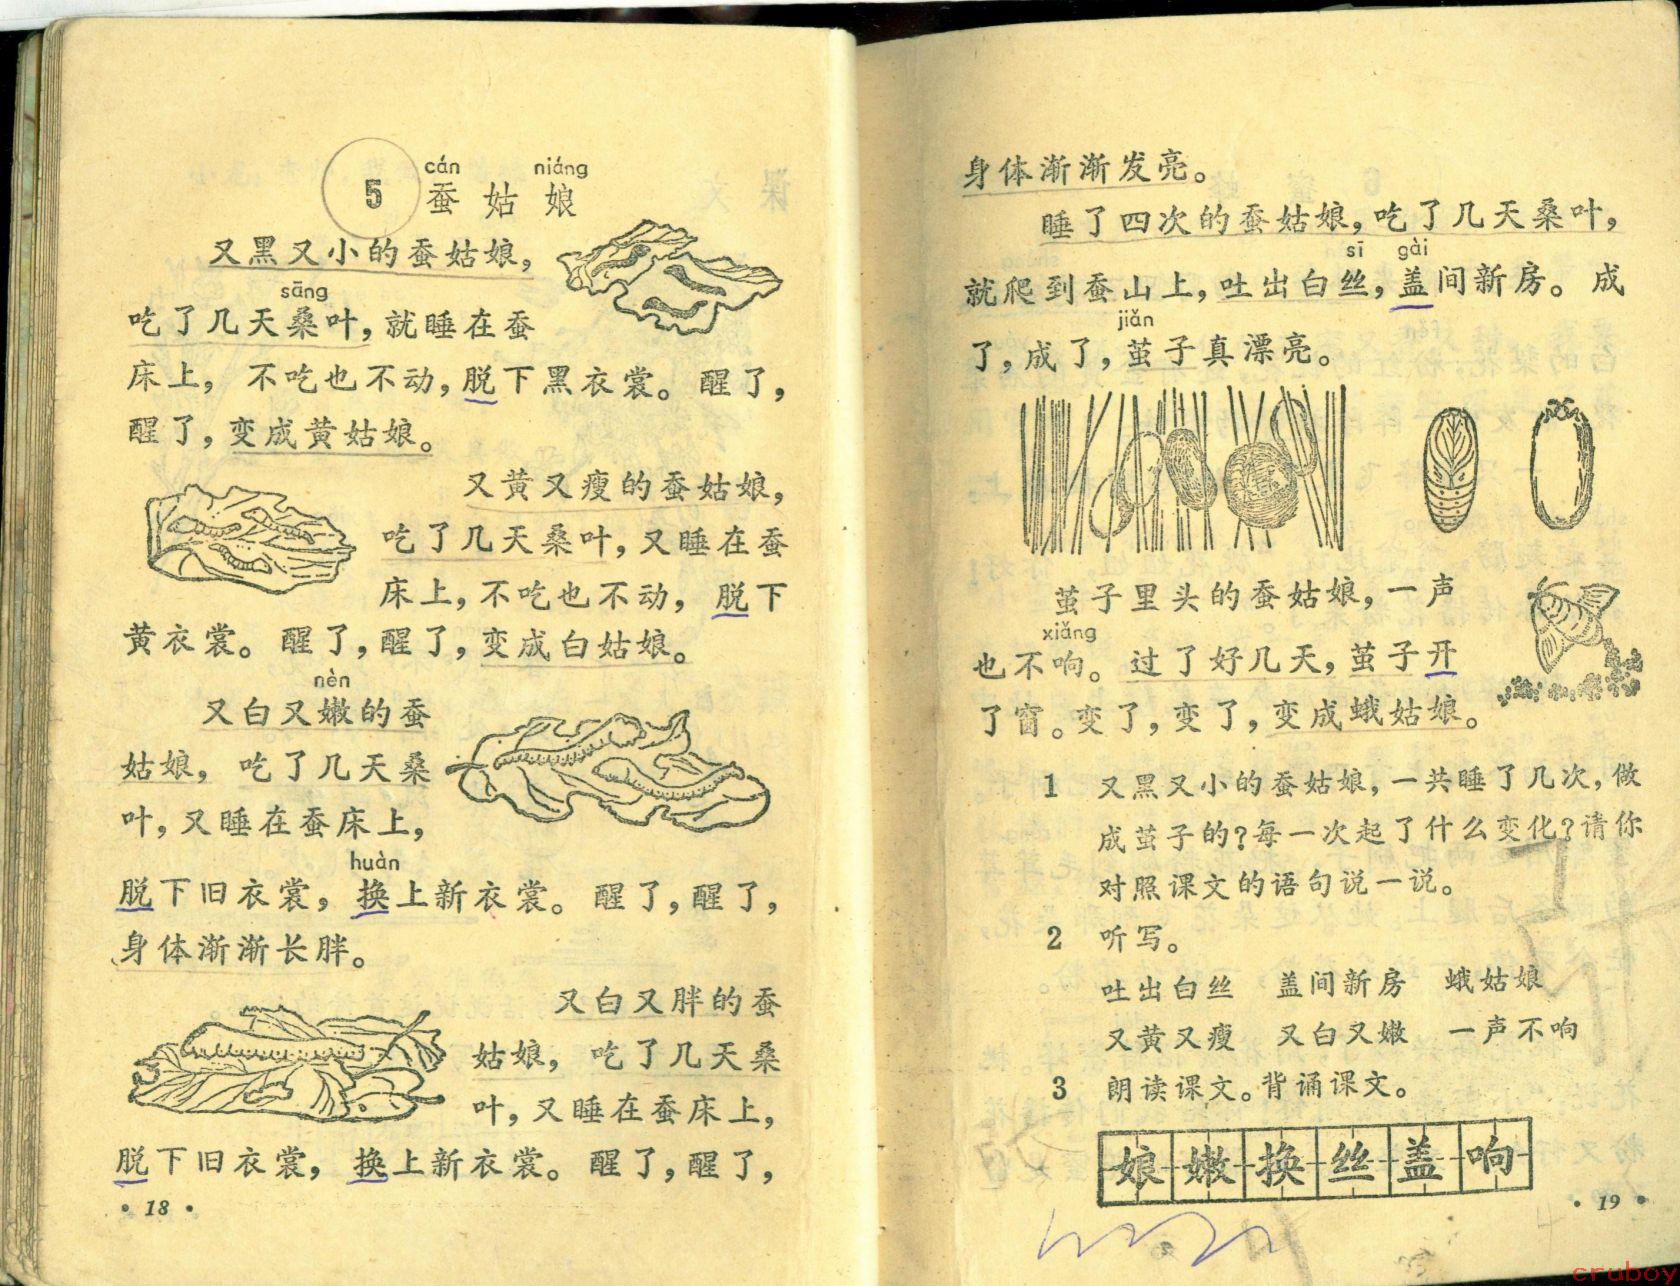 cán niáng
5 蚕姑娘
又黑又小的蚕姑娘，
sāng
吃了几天桑叶，就睡在蚕
床上，不吃也不动，脱下黑衣裳。醒了，
醒了，变成黄姑娘。
又黄又瘦的蚕姑娘，
吃了几天桑叶，又睡在蚕
床上，不吃也不动，脱下
黄衣裳。醒了，醒了，变成白姑娘。
nèn
又白又嫩的蚕
姑娘，吃了几天桑
叶，又睡在蚕床上，
huàn
脱下旧衣裳，换上新衣裳。醒了，醒了，
身体渐渐长胖。
又白又胖的蚕
姑娘，吃了几天桑
叶，又睡在蚕床上，
脱下旧衣裳，换上新衣裳。醒了，醒了，
·18·
身体渐渐发亮。
睡了四次的蚕姑娘，吃了几天桑叶，
sī gài
就爬到蚕山上，吐出白丝，盖间新房。成
jiǎn
了，成了，茧子真漂亮。
茧子里头的蚕姑娘，一声
xiǎng
也不响。过了好几天，茧子开
了窗。变了，变了，变成蛾姑娘。
1 又黑又小的蚕姑娘，一共睡了几次，做
成茧子的？每一次起了什么变化？请你
对照课文的语句说一说。
2 听写。
吐出白丝 盖间新房 蛾姑娘
又黄又瘦 又白又嫩 一声不响
3 朗读课文。背诵课文。
娘嫩换丝盖响
·19·
cruboy